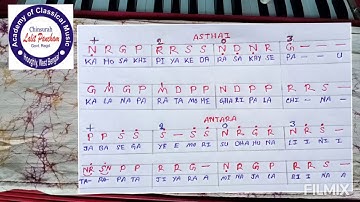 Academy of Classical Music
Chinsurah
Lalit Pancham
Govt. Regd.
Hooghly West Bengal
ASTHAI
+ 2 0 3
N R G P R R S S N D N R G — — —
KA HO SA KHI PI YA KE DA RA SA KAY SE PA — — U
G M G P M D P P N D P P G R S —
KA LA NA PA RA TA MO HE GHA RI PA LA CHI — NA —
ANTARA
+ 2 0 3
P P S S S — S S N R G R N R S —
JA BA SE GA YE E MO RI SU DHA HU NA LI I NI I
NR SN P P R R S — N R G P R R S —
TA- RA- PA TA JI YA RA A MI NA JA LA BI I NA A
FILMIX